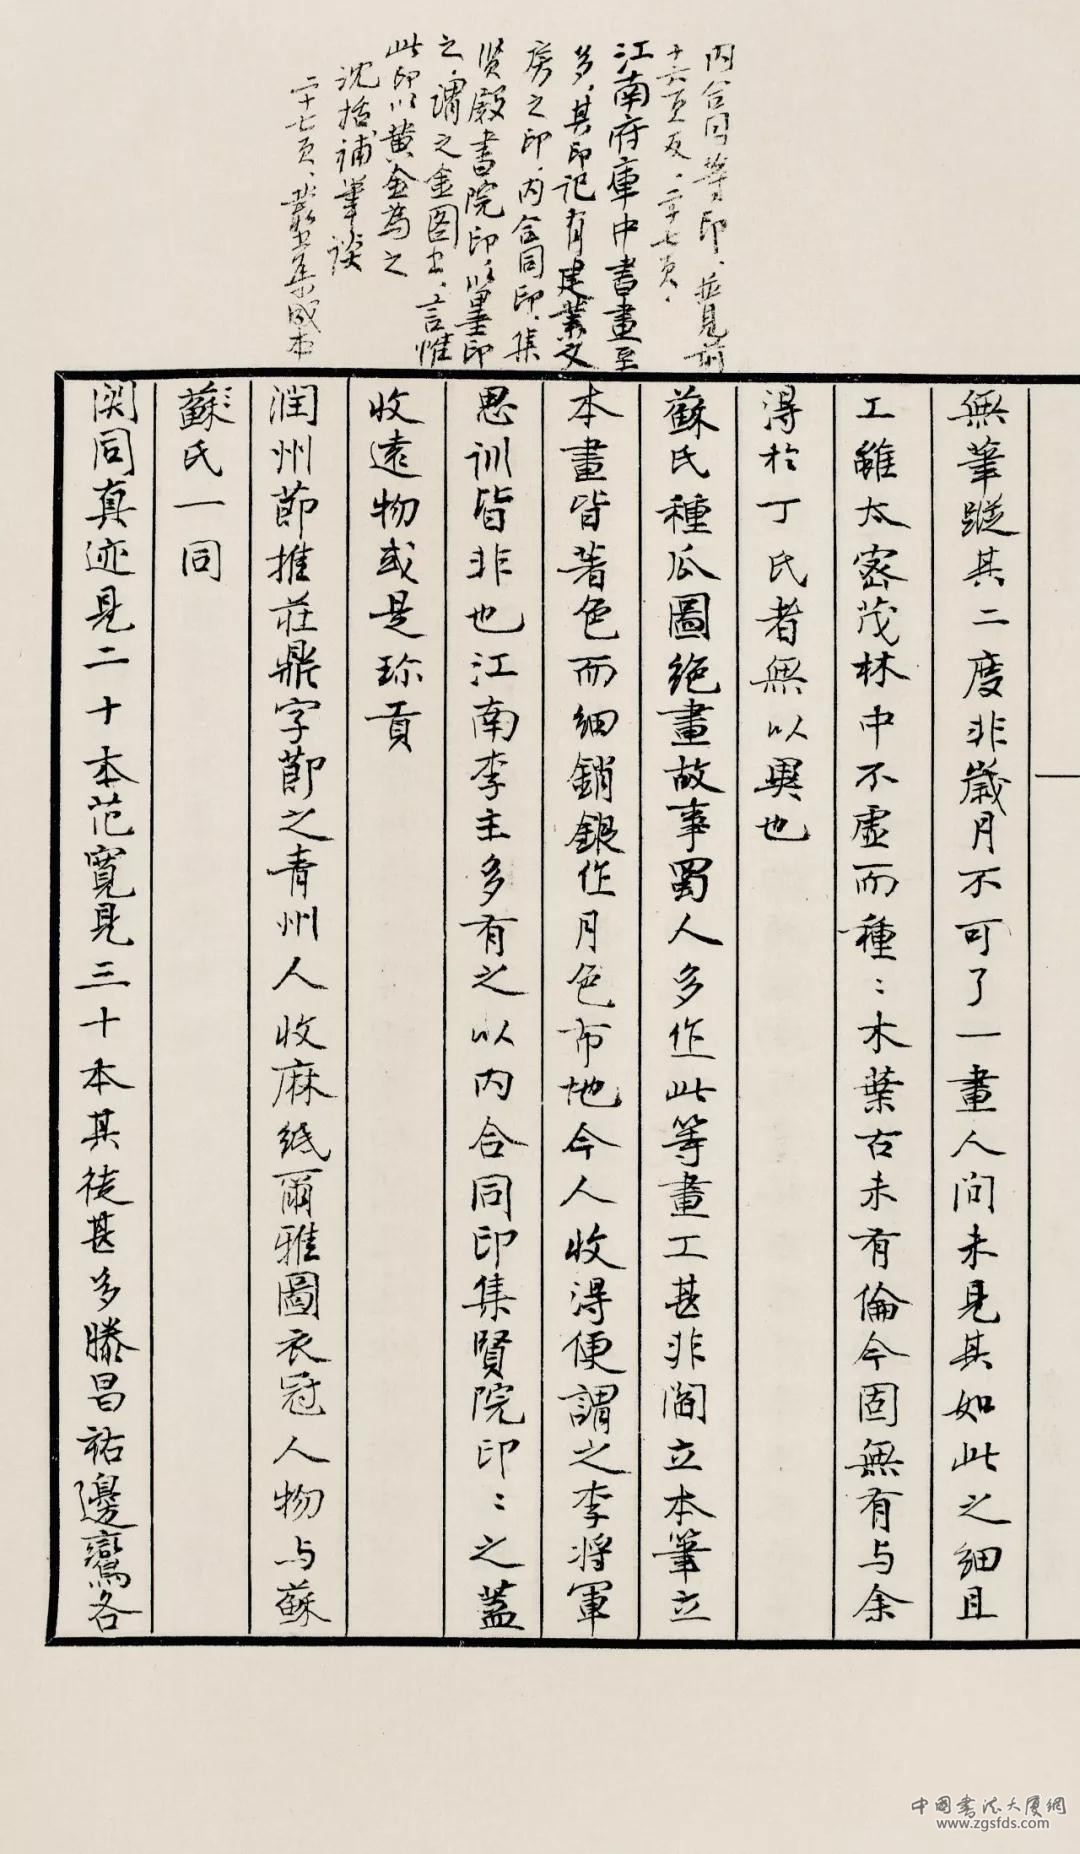 内合同等印、並見前
十六頁反、二十七頁、
江南府庫中書畫至
多、其印記有建業文
房之印、内合同印、集
賢殿書院印、以墨印
之、謂之金图书、言惟
此印以黄金為之
沈括補筆談
二十七頁、叢书集成本
無筆蹤其二度非歲月不可了一畫人间未見其如此之细且
工雖太密茂林中不虚而種：木葉古未有倫今固無有与余
得於丁氏者無以異也
蘇氏種瓜圖绝畫故事蜀人多作此等畫工甚非閻立本筆立
本畫皆著色而细銷銀作月色布地今人收得便謂之李将軍
思训皆非也江南李主多有之以内合同印集賢院印：之蓋
收遠物或是珍貢
润州節推莊鼎字節之青州人收麻纸爾雅圖衣冠人物与蘇
蘇氏一同
関同真迹見二十本范寬見三十本其徒甚多滕昌祐邊鸞各
中国书法大厦網
www.zgsfds.com